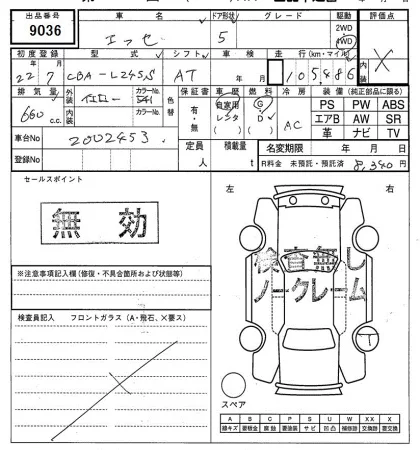 出品番号 車名 ドア形状 グレード 駆動 評価点
9036 エッセ 5 2WD 4WD X
初度登録 型式 シフト 車検 走行(km・マイル) 内装
22年7月 CBA-L245S AT 年 月 105,486
排気量 外装 カラーNo. 色替 保証書 車歴 燃料 冷房 装備(純正部品に限る)
660 c.c. 内装 カラーNo. 有・無 自家用 レンタ ( ) G D ( ) AC PS PW ABS
エアB AW SR
革 ナビ TV
車台No 2002453 定員 人 積載量 t 名変期限 年 月 日
登録No R料金 未預託・預託済 8,340円
セールスポイント
無効
左 右
検査無し
ノークレーム
※注意事項記入欄(修復・不具合箇所および状態等)
検査員記入 フロントガラス(A・飛石、X要ス)
スペア
A B C P S U W XX X
線キズ 要板金 腐蝕 要塗装 サビ 凹凸 補修跡 交換跡 要交換